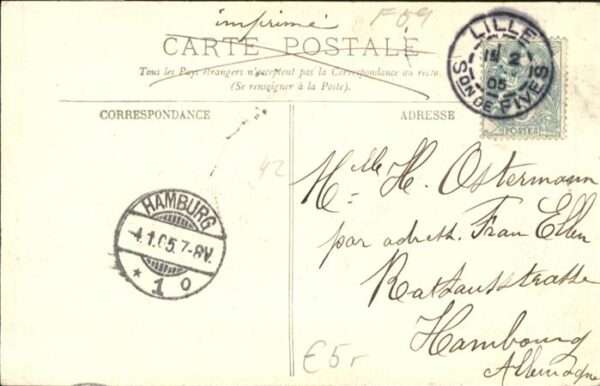 imprimé
F09
CARTE POSTALE
Tous les Pays étrangers n'acceptent pas la Correspondance au recto.
(Se renseigner à la Poste).
CORRESPONDANCE
ADRESSE
LILLE
2
05
SON DE FIVES
POSTES
42
HAMBURG
4.1.05.7-8V.
* 1 o
Mlle H. Ostermann
par adresse Frau Ellen
Rathausstrasse
Hambourg
Allemagne
€5